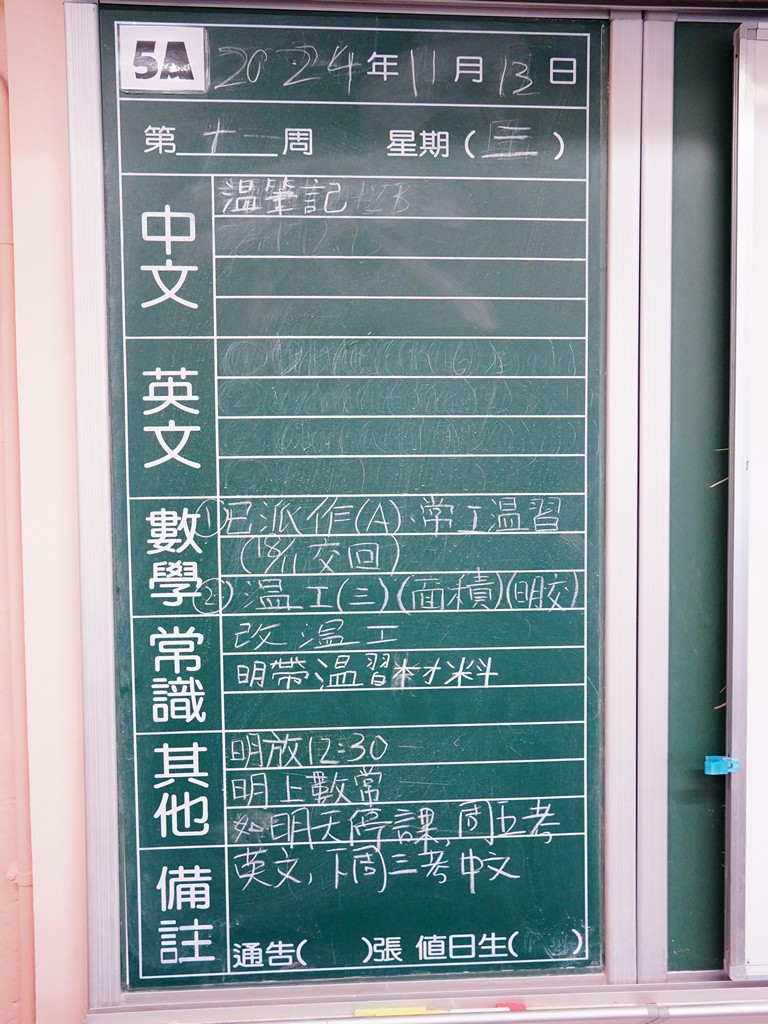 5A 2024年11月13日
第十一周 星期(三)
中文
溫筆記
英文
數學
①已派作(A)、常工溫習
(18/11交回)
②溫工(三)(面積)(明交)
常識
改溫工
明帶溫習材料
其他
明放12:30
明上數常
如明天停課,周五考
備註
英文,下周三考中文
通告( )張 值日生( )